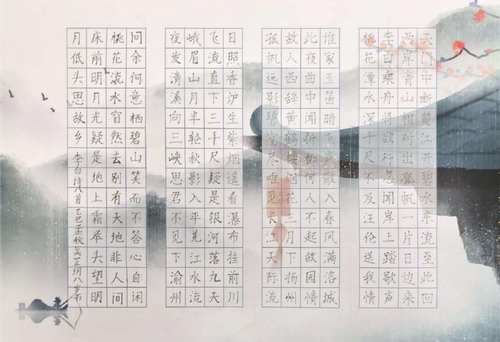 天门中断楚江开碧水东流至此回
两岸青山相对出孤帆一片日边来
李白乘舟将欲行忽闻岸上踏歌声
桃花潭水深千尺不及汪伦送我情
谁家玉笛暗飞声散入春风满洛城
此夜曲中闻折柳何人不起故园情
故人西辞黄鹤楼烟花三月下扬州
孤帆远影碧空尽唯见长江天际流
日照香炉生紫烟遥看瀑布挂前川
飞流直下三千尺疑是银河落九天
峨眉山月半轮秋影入平羌江水流
夜发清溪向三峡思君不见下渝州
问余何意栖碧山笑而不答心自闲
桃花流水窅然去别有天地非人间
床前明月光疑是地上霜举头望明
月低头思故乡 李白诗八首乙巳孟秋